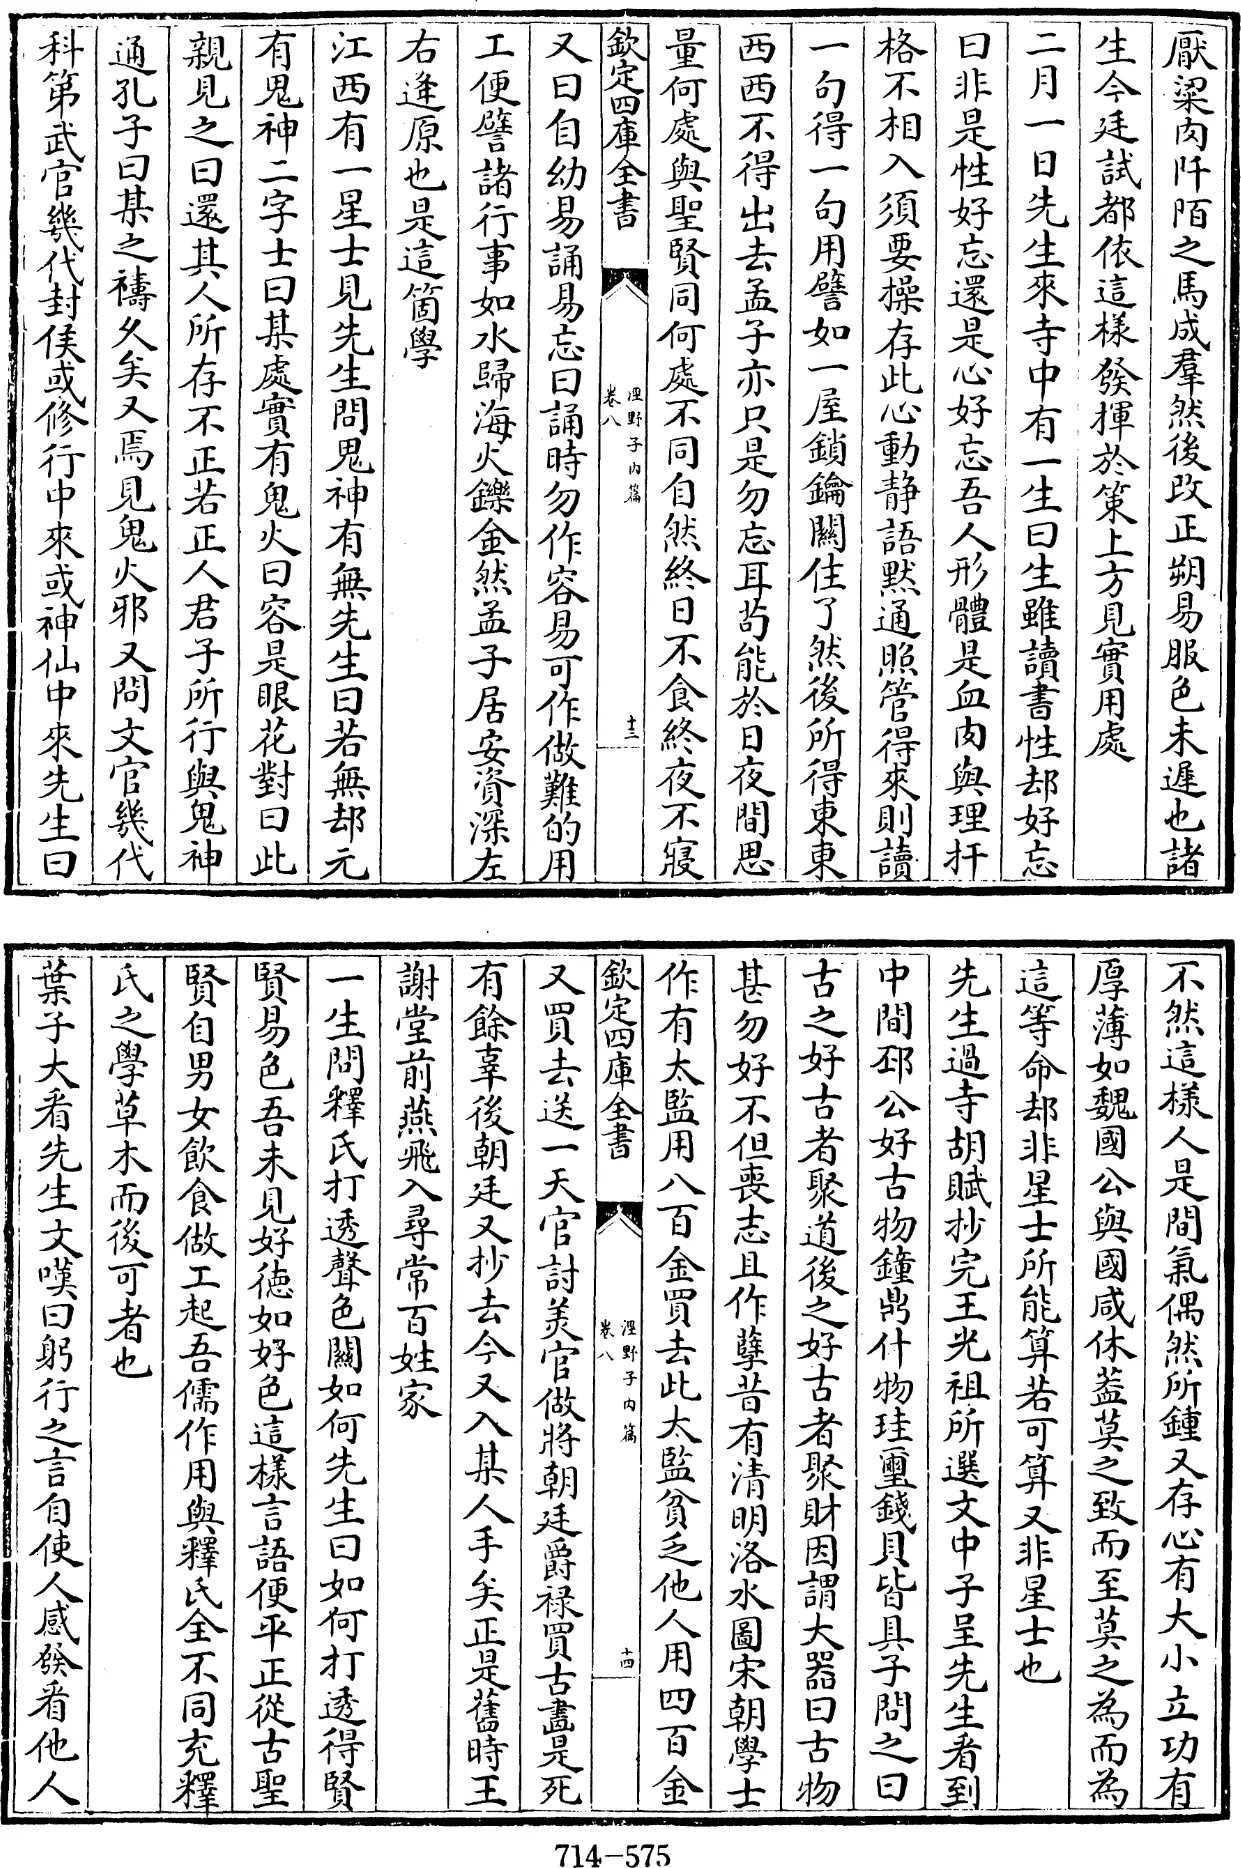 厭粱肉阡陌之馬成羣然後改正朔易服色未遲也諸
生今廷試都依這樣發揮於策上方見實用處
二月一日先生來寺中有一生曰生雖讀書性却好忘
曰非是性好忘還是心好忘吾人形體是血肉與理扞
格不相入須要操存此心動靜語默通照管得來則讀
一句得一句用譬如一屋鎖鑰關住了然後所得東東
西西不得出去孟子亦只是勿忘耳苟能於日夜間思
量何處與聖賢同何處不同自然終日不食終夜不寢
欽定四庫全書
涇野子內篇
卷八
十三
又曰自幼易誦易忘曰誦時勿作容易可作做難的用
工便譬諸行事如水歸海火鑠金然孟子居安資深左
右逢原也是這箇學
江西有一星士見先生問鬼神有無先生曰若無却元
有鬼神二字士曰某處實有鬼火曰容是眼花對曰此
親見之曰還其人所存不正若正人君子所行與鬼神
通孔子曰某之禱久矣又焉見鬼火邪又問文官幾代
科第武官幾代封侯或修行中來或神仙中來先生曰
不然這樣人是間氣偶然所鍾又存心有大小立功有
厚薄如魏國公與國咸休葢莫之致而至莫之為而為
這等命却非星士所能算若可算又非星士也
先生過寺胡賦抄完王光祖所選文中子呈先生看到
中間邳公好古物鐘鼎什物珪璽錢貝皆具子問之曰
古之好古者聚道後之好古者聚財因謂大器曰古物
甚勿好不但喪志且作孽昔有清明洛水圖宋朝學士
作有太監用八百金買去此太監貧乏他人用四百金
欽定四庫全書
涇野子內篇
卷八
十四
又買去送一天官討美官做將朝廷爵祿買古畵是死
有餘辜後朝廷又抄去今又入某人手矣正是舊時王
謝堂前燕飛入尋常百姓家
一生問釋氏打透聲色關如何先生曰如何打透得賢
賢易色吾未見好徳如好色這樣言語便平正從古聖
賢自男女飲食做工起吾儒作用與釋氏全不同充釋
氏之學草木而後可者也
葉子大看先生文嘆曰躬行之言自使人感發看他人
714-575